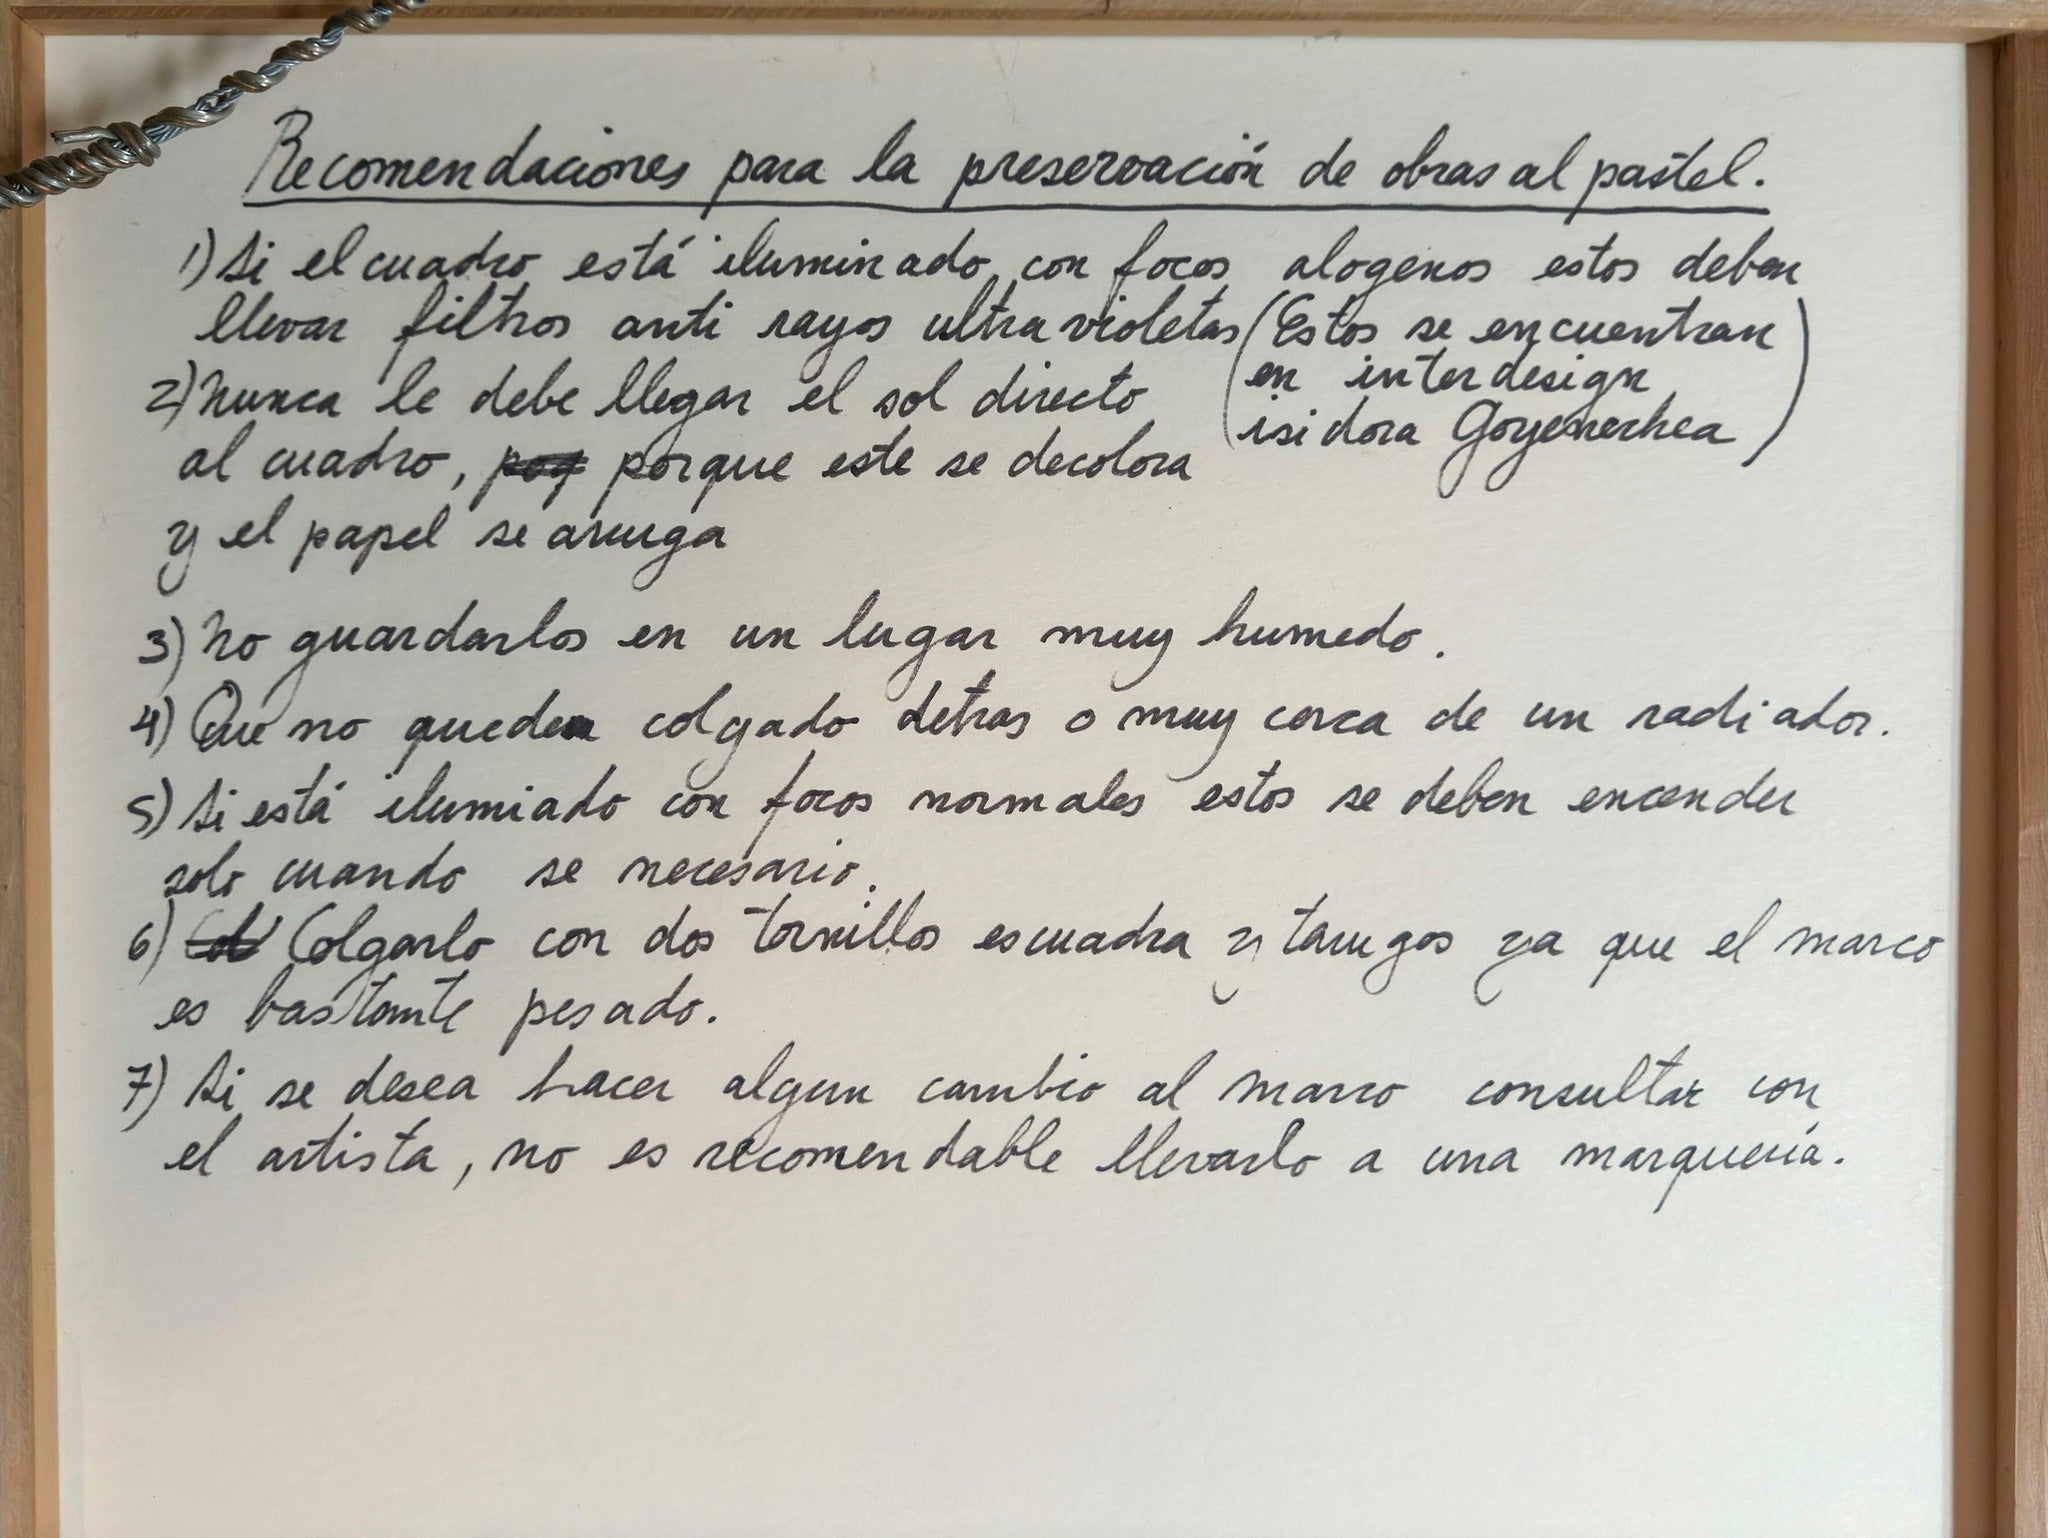 Recomendaciones para la preservación de obras al pastel.
1) Si el cuadro está iluminado con focos alogenos estos deben
llevar filtros anti rayos ultravioletas (Estos se encuentran
en interdesign
isidora Goyenerchea)
2) Nunca le debe llegar el sol directo
al cuadro, porque este se decolora
y el papel se arruga
3) No guardarlos en un lugar muy humedo.
4) Que no queden colgado detras o muy cerca de un radiador.
5) Si está ilumiado con focos normales estos se deben encender
solo cuando se necesario.
6) Colgarlo con dos tornillos escuadra y tarugos ya que el marco
es bastante pesado.
7) Si se desea hacer algun cambio al marco consultar con
el artista, no es recomendable llevarlo a una marquería.